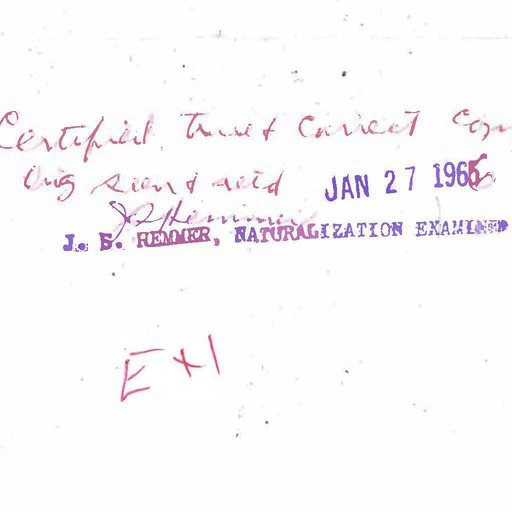 Certified True & Correct Copy
Orig seen & retd JAN 27 1966
JSHemmer
J. S. HEMMER, NATURALIZATION EXAMINER
Ex 1